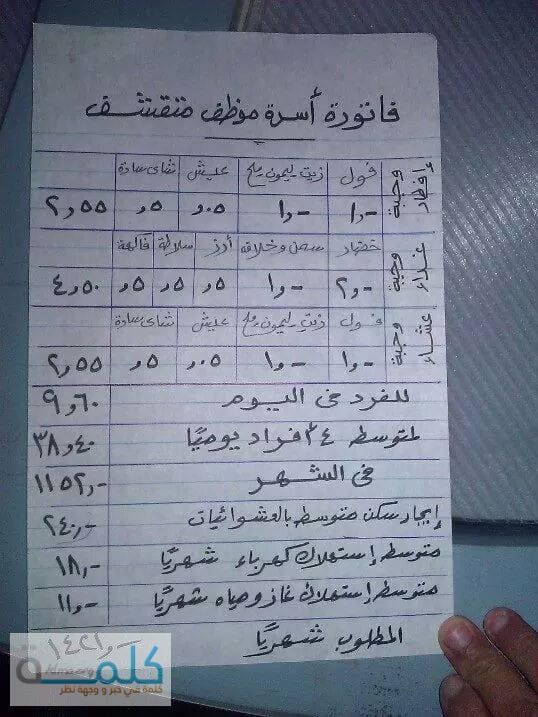 فاتورة أسرة موظف متقشف
وجبة إفطار
فول زيت ليمون ملح عليش شاى سادة
١,- ١,- ٠٥, ٥, ٢,٥٥
وجبة غداء
خضار سمن وخلافه أرز سلاطة فاكهة
٢,- ١,- ٥, ٥, ٥, ٤,٥٠
وجبة عشاء
فول زيت ليمون ملح عليش شاى سادة
١,- ١,- ٠٥, ٥, ٢,٥٥
للفرد فى اليوم ٩,٦٠
لمتوسط ٤ أفراد يوميًا ٣٨,٤٠
فى الشهر ١١٥٢,-
إيجار سكن متوسط بالعشوائيات ٢٤٠,-
متوسط إستهلاك كهرباء شهريًا ١٨,-
متوسط إستهلاك غاز ومياه شهريًا ١١,-
المطلوب شهريًا ١٤٢١,-
كلمة
كلمة في خبر و وجهة نظر